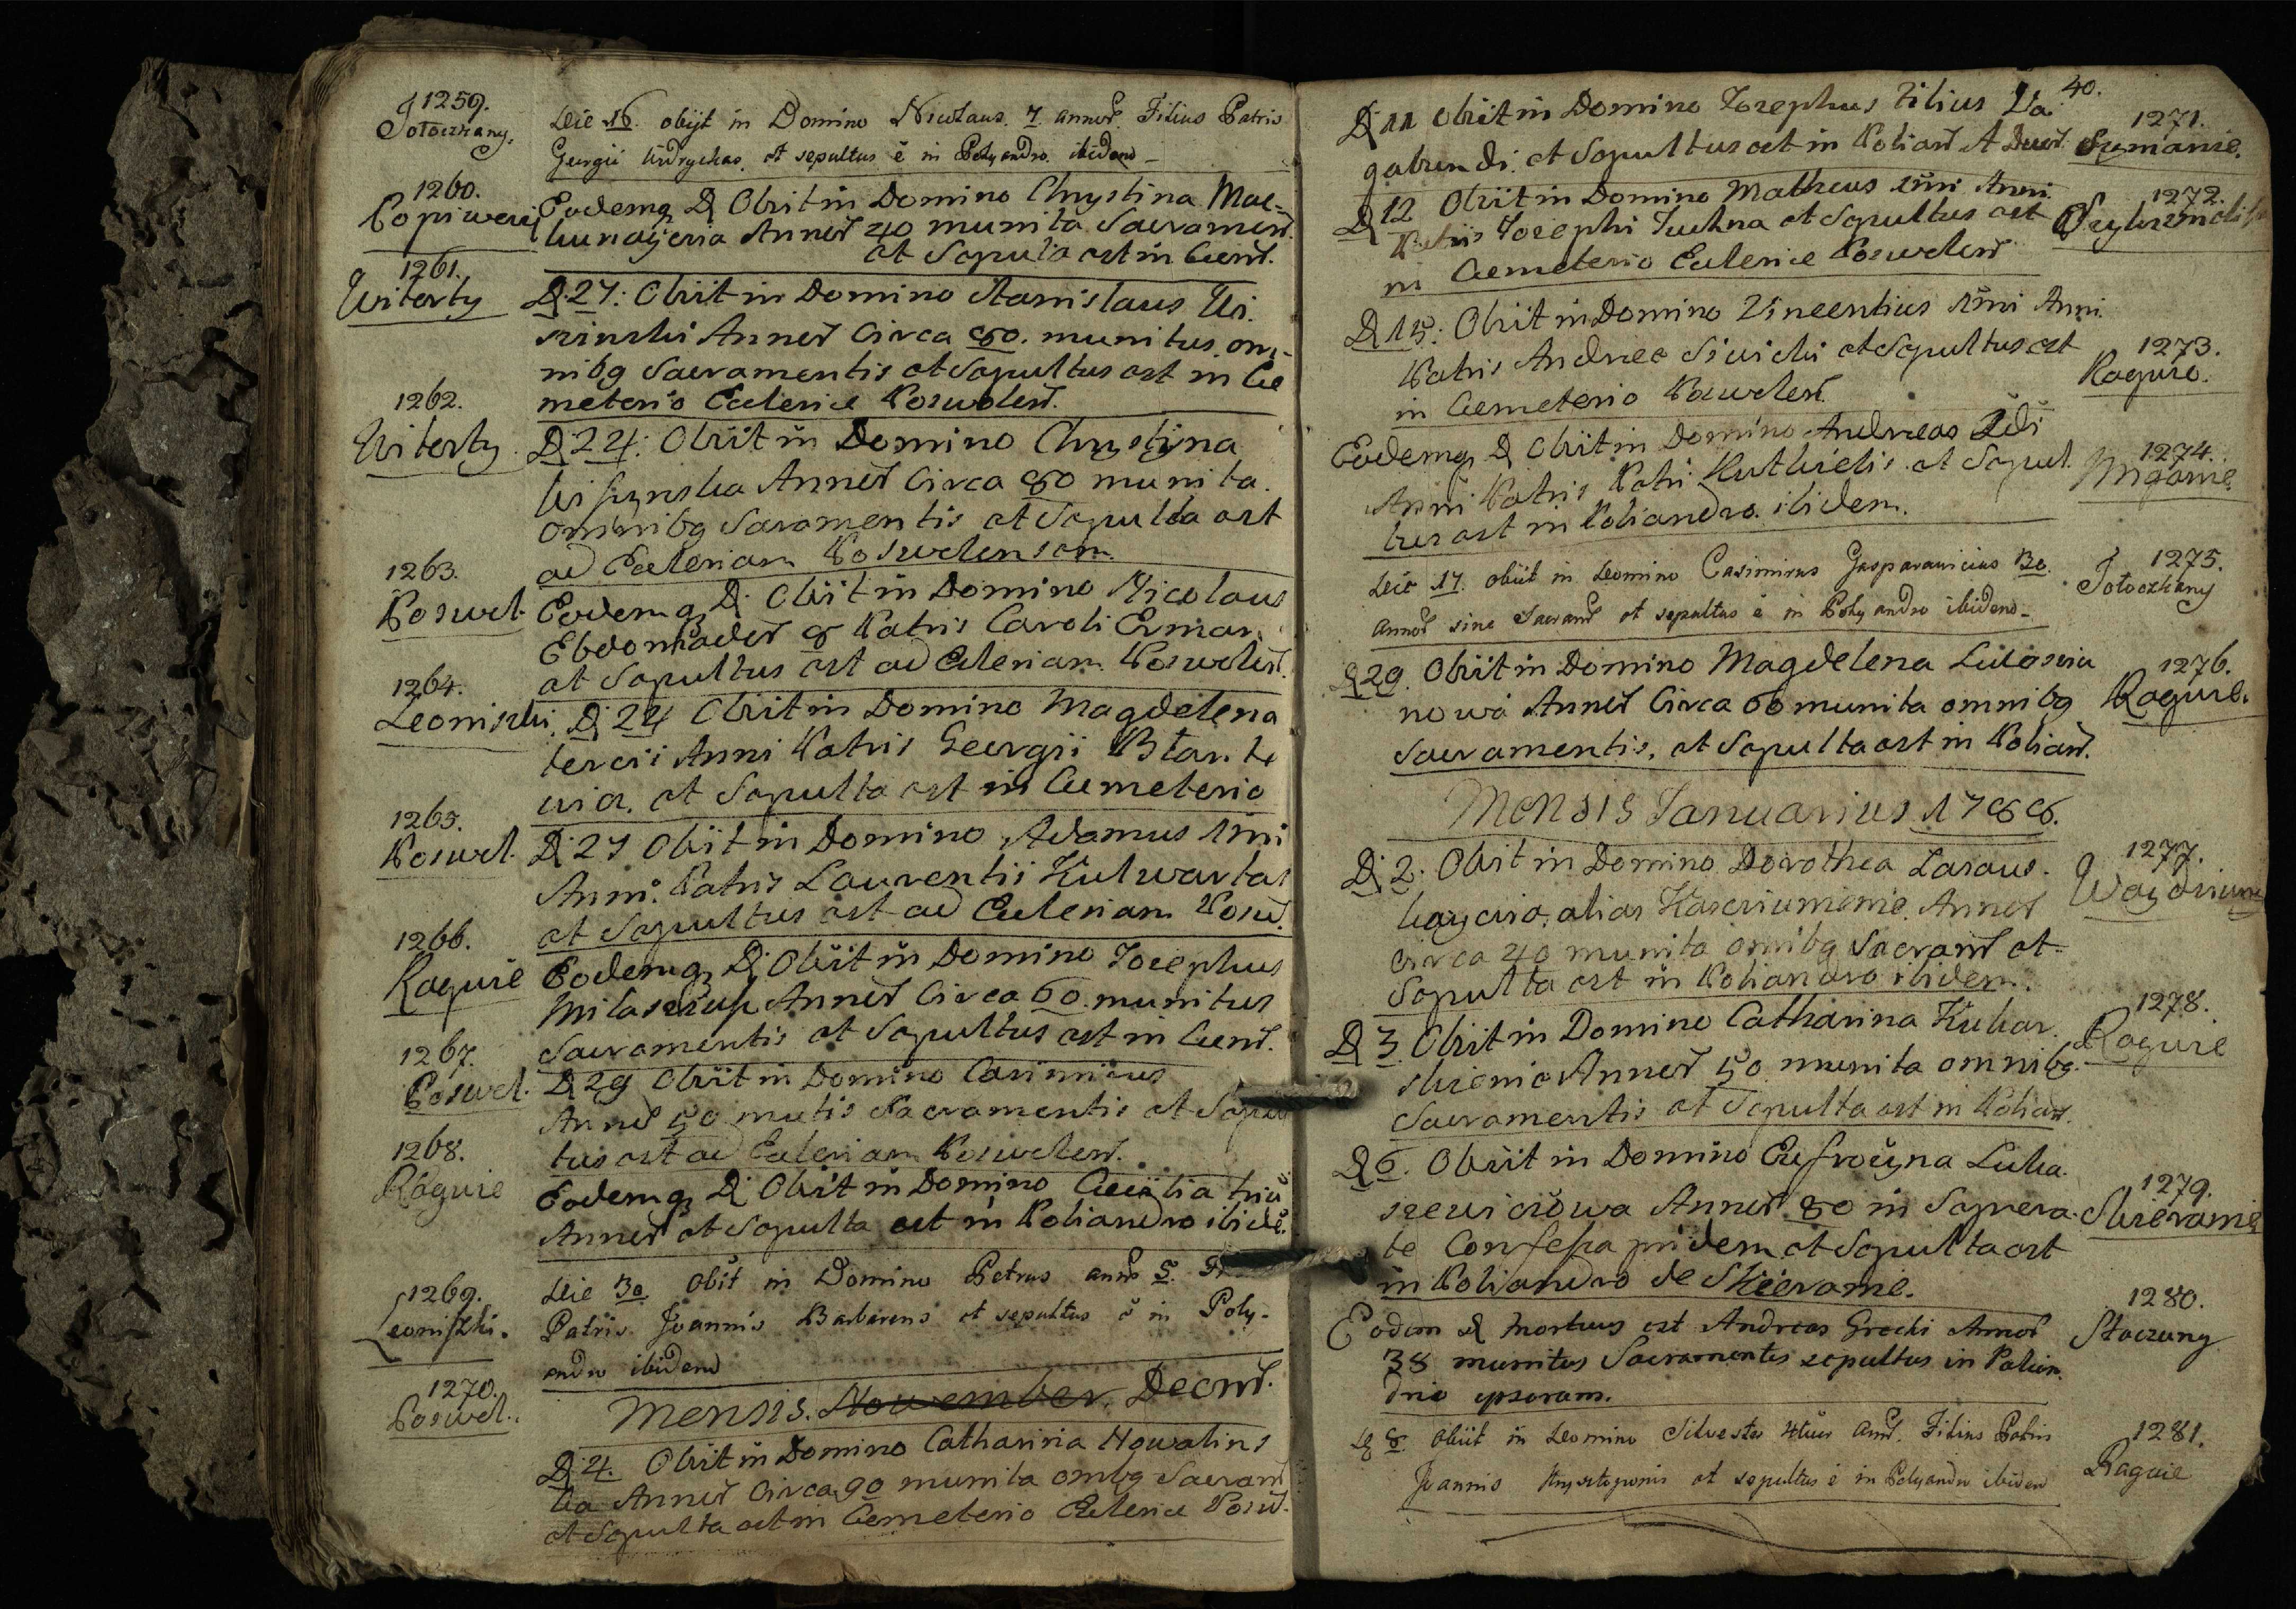 1259.
Jotoczkany.
Die 16. obijt in Domino Nicolaus. 7. annor̃ Filius Patris
Georgii Andryckas. et sepultus ẽ in Polyandro. ibidem
1260.
Popiweij
Eodemq D Obiit in Domino Chrystina Mac-
Annor̃ 40 munita Sacramen.
et Sepulta est in Cem.
1261.
Uiterty
D: 27: Obiit in Domino Stanislaus Ur.
szinski Annor̃ Circa 80. munitus om-
nibq Sacramentis et Sepultus est in Ce
meterio Ecclesiæ Poswolen.
1262.
Uiterty
D: 24: Obiit in Domino Chrystina
Annor̃ Circa 80 munita.
omnibq Sacramentis et Sepulta est
ad Eclesiam Poswolensem.
1263.
Poswol.
Eodemq D. Obiit in Domino Nicolaus
Ebdomader̃ 8 Patris Caroli Ermar.
et Sepultus est ad Eclesiam Poswolen.
1264.
Leoniszki.
D: 24 Obiit in Domino Magdelena
tercii Anni Patris Georgii Blan. ke
wicz. et Sepulta est in Cemeterio
1265.
Poswol.
D: 27 Obiit in Domino Adamus 1mi
Anni. Patris Laurentii Kulwartas
et Sepultus est ad Eclesiam Posw.
1266.
Raguie
Eodemq D: Obiit in Domino Josephus
Annor̃ Circa 60. munitus
Sacramentis et Sepultus est in Cem.
1267.
Poswol.
D 29 Obiit in Domino Casimirus
Annor̃ 50 mutis Sacramentis et Sepul
tus est ad Eclesiam Poswolen.
1268.
Raguie
Eodemq D: Obiit in Domino Cecilia triũ
Annor̃ et Sepulta est in Poliandro ibidẽ.
1269.
Leoniszki.
Die 30 Obiit in Domino Petrus annor̃ 5.
Patris Joannis Barbarens et sepultus ẽ in Poly-
andro ibidem
1270.
Poswol.
Mensis. November. Decem̃.
D: 4. Obiit in Domino Catharina Nowalins
ka Annor̃ Circa 90 munita ombq Sacram̃
et Sepulta est in Cemeterio Eclesiæ Posw.
40.
D 11 Obiit in Domino Josephus Filius Va.
gabundi. et Sepultus est in Polian̄ A Duor̃.
1271.
Symanie.
D 12 Obiit in Domino Matheus 1mi Anni.
Patris Josephi Juchna et Sepultus est
in Cemeterio Eclesiæ Poswolen̄
1272.
D 15: Obiit in Domino Vincentius 1mi Anni
Patris Andreæ Siwicki et Sepultus est
in Cemeterio Poswolen̄.
1273.
Raguie.
Eodemq D Obiit in Domino Andreas 2di
Anni Patris Petri Kuthielis. et Sepul.
tus est in Poliandro. ibidem.
1274.
Migonie
Die 17. obiit in Domino Casimirus Gasparawicius 30.
annor̃ sine Sacram̃ et sepultus ẽ in Polyandro ibidem
1275.
Jotoczkany
D 29. Obiit in Domino Magdelena
nowa Annor̃ Circa 60 munita omnibq
Sacramentis. et Sepulta est in Polian̄.
1276.
Raguie.
Mensis Januarius 1788.
D: 2: Obiit in Domino Dorothea Laraus.
alias Annor̃
circa 40 munita omibq Sacram̃ et
Sepulta est in Poliandro ibidem.
1277.
D 3. Obiit in Domino Catharina Kukar.
skienia Annor̃ 50 munita omnibq
Sacramentis et Sepulta est in Polian̄.
1278.
Raguie
D 6. Obiit in Domino Eufrozyna Luka.
szewiczowa Annor̃ 80 in Sepvera.
te Confessa pridem et Sepulta est
in Poliandro de Skierame.
1279.
Skierame
Eodem D Mortuus est Andreas Grecki Annor̃
38 munitus Sacramentis sepultus in Polian
drio ipsorum.
1280.
Staczuny
D 8. obiit in Domino Silvester 4tus ann̄. Filius Patris
Joannis et sepultus ẽ in Polyandro ibidem
1281.
Raguie